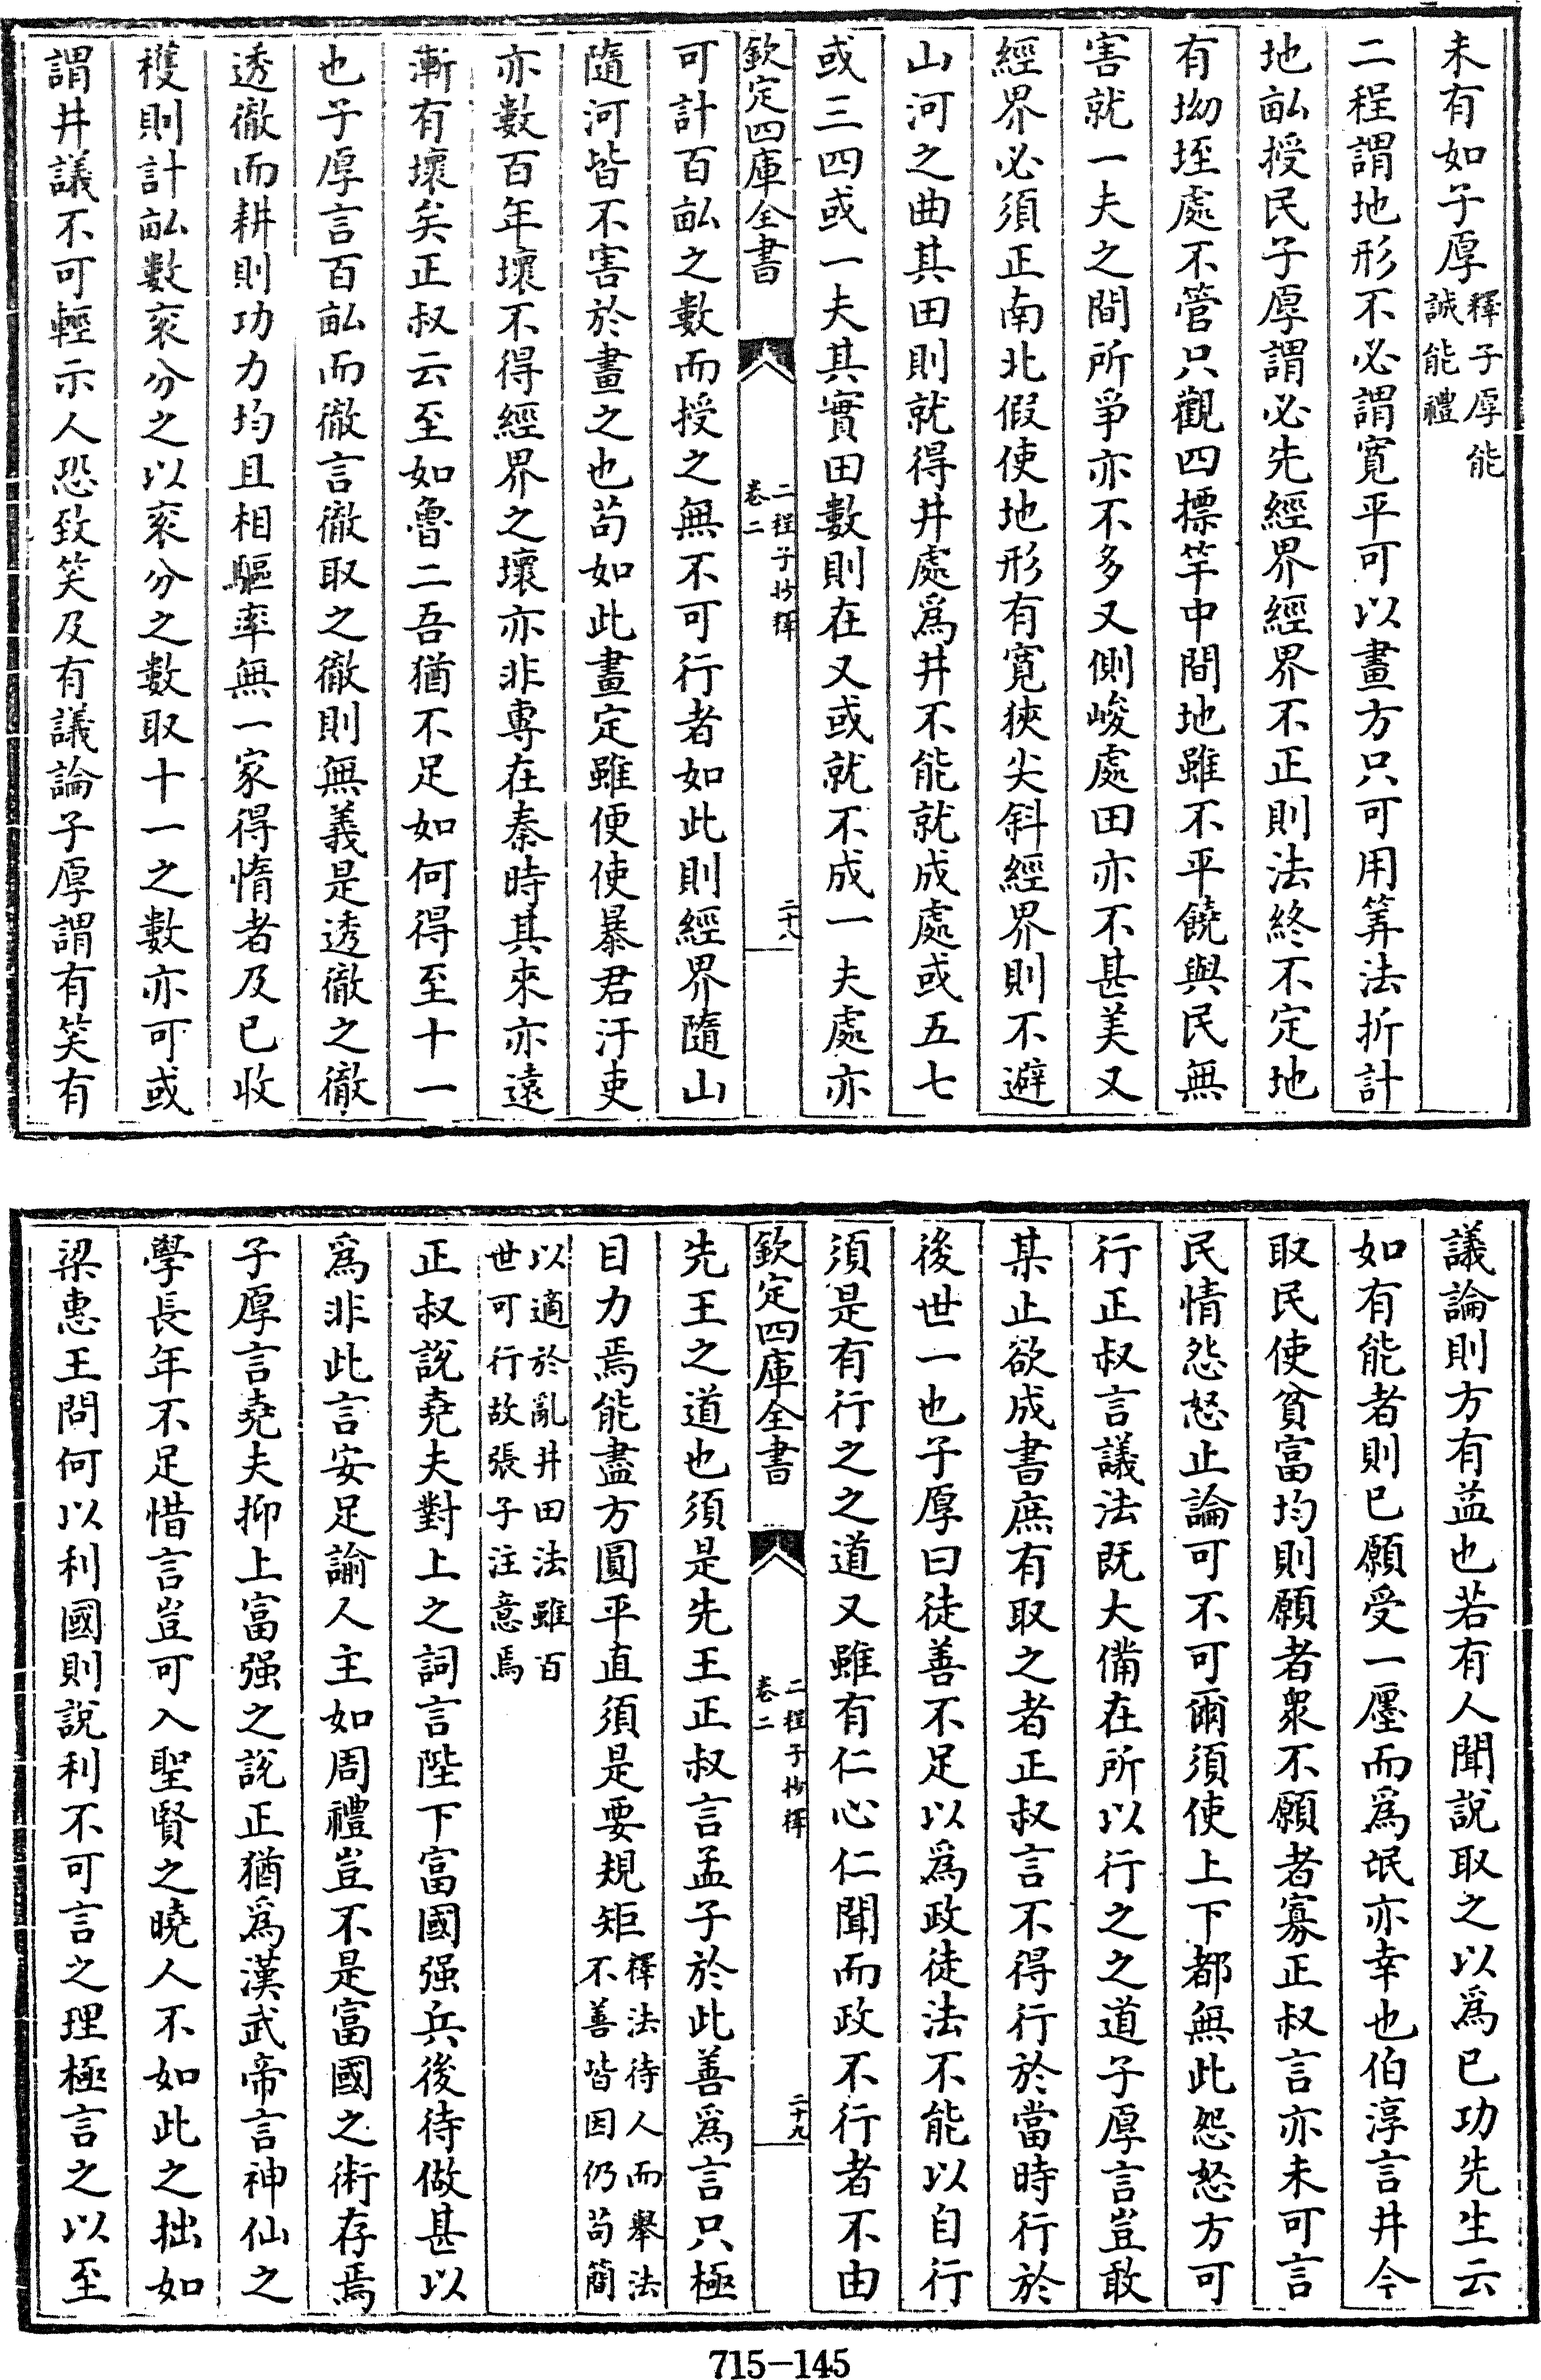 未有如子厚釋子厚能誠能禮
二程謂地形不必謂寛平可以畫方只可用筭法折計
地畝授民子厚謂必先經界經界不正則法終不定地
有坳垤處不管只觀四標竿中間地雖不平饒與民無
害就一夫之間所爭亦不多又側峻處田亦不甚美又
經界必須正南北假使地形有寛狹尖斜經界則不避
山河之曲其田則就得井處爲井不能就成處或五七
或三四或一夫其實田數則在又或就不成一夫處亦
欽定四庫全書
二程子抄釋
卷二
二十八
可計百畝之數而授之無不可行者如此則經界隨山
隨河皆不害於畫之也苟如此畫定雖便使暴君汙吏
亦數百年壞不得經界之壞亦非專在秦時其來亦遠
漸有壞矣正叔云至如魯二吾猶不足如何得至十一
也子厚言百畝而徹言徹取之徹則無義是透徹之徹
透徹而耕則功力均且相驅率無一家得惰者及已收
穫則計畝數裒分之以裒分之數取十一之數亦可或
謂井議不可輕示人恐致笑及有議論子厚謂有笑有
議論則方有益也若有人聞說取之以爲已功先生云
如有能者則已願受一廛而爲氓亦幸也伯淳言井今
取民使貧富均則願者衆不願者寡正叔言亦未可言
民情怨怒止論可不可爾須使上下都無此怨怒方可
行正叔言議法既大備在所以行之之道子厚言豈敢
某止欲成書庶有取之者正叔言不得行於當時行於
後世一也子厚曰徒善不足以爲政徒法不能以自行
須是有行之之道又雖有仁心仁聞而政不行者不由
欽定四庫全書
二程子抄釋
卷二
二十九
先王之道也須是先王正叔言孟子於此善爲言只極
目力焉能盡方圓平直須是要規矩釋法待人而舉法不善皆因仍苟簡
以適於亂井田法雖百世可行故張子注意焉
正叔說堯夫對上之詞言陛下富國强兵後待做甚以
爲非此言安足諭人主如周禮豈不是富國之術存焉
子厚言堯夫抑上富强之說正猶爲漢武帝言神仙之
學長年不足惜言豈可入聖賢之曉人不如此之拙如
梁惠王問何以利國則說利不可言之理極言之以至
715-145